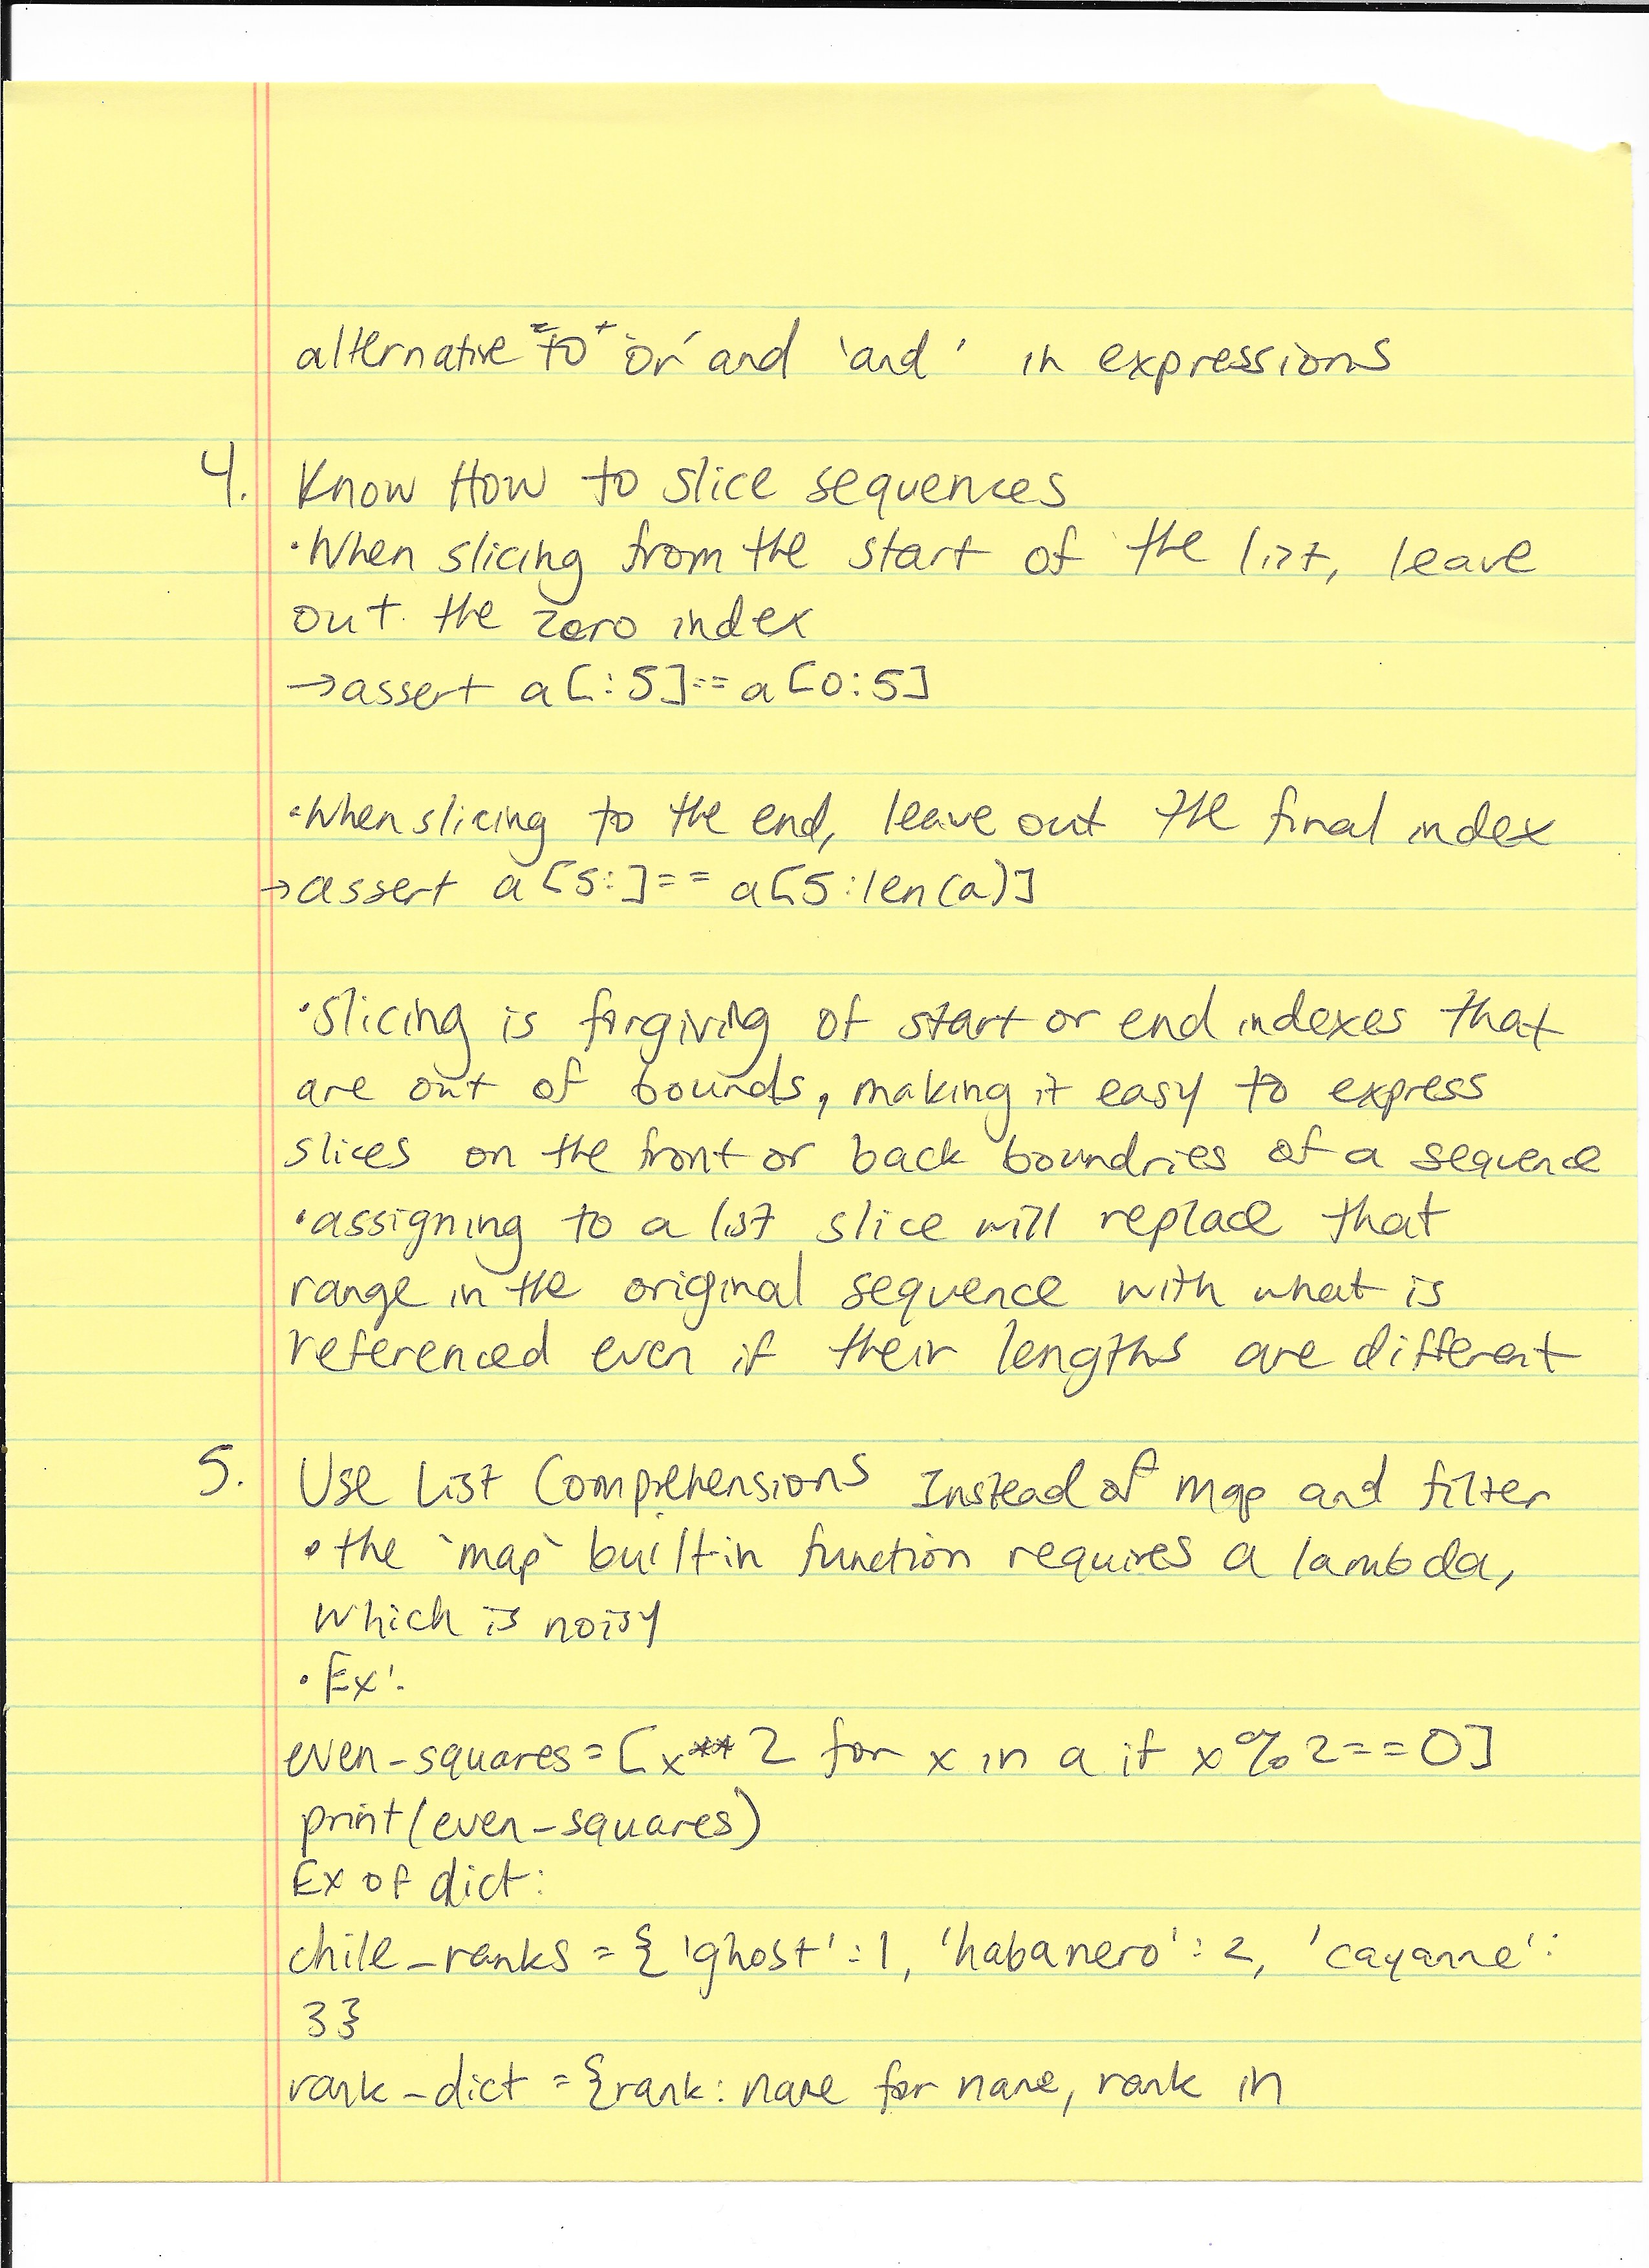 alternative to 'or' and 'and' in expressions
4. Know How to slice sequences
• When slicing from the start of the list, leave
out the zero index
→ assert a[:5]==a[0:5]
• When slicing to the end, leave out the final index
→ assert a[5:]== a[5:len(a)]
• Slicing is forgiving of start or end indexes that
are out of bounds, making it easy to express
slices on the front or back boundries of a sequence
• assigning to a list slice will replace that
range in the original sequence with what is
referenced even if their lengths are different
5. Use List Comprehensions Instead of map and filter
• the `map` built-in function requires a lambda,
which is noisy
• Ex:
even_squares=[x**2 for x in a if x%2==0]
print(even_squares)
Ex of dict:
chile_ranks = {'ghost':1, 'habanero':2, 'cayanne':
3}
rank_dict = {rank: name for name, rank in